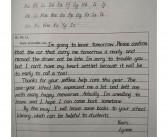 I'm going to leave tomorrow. Please confirm
that the car that carries me tomorrow is ready and
remind the driver not be late. I'm sorry to trouble you,
but I can't have my heart settled because it will be
to early to call a taxi.
Thanks for your selfless help over the year. The
one-year school life impressed me a lot and left me
with many happy memories. Actually, I'm unwilling to
leave and I hope I can come back sometime.
By the way, I will leave some books to your school
library, which can be helpful to students.
Yours,
Lynne